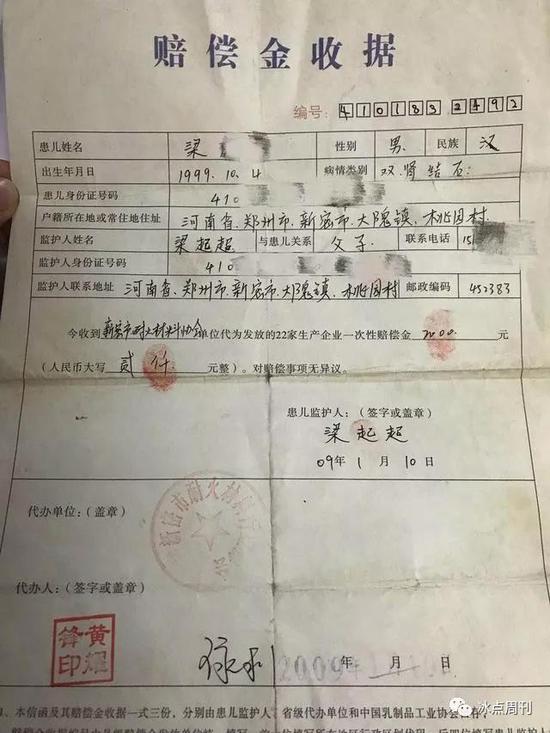 赔偿金收据
编号: 4101832492
患儿姓名 梁 性别 男 民族 汉
出生年月日 1999.10.4 病情类别 双肾结石
患儿身份证号码 410
户籍所在地或常住地住址 河南省、郑州市、新密市、大隗镇、桃园村
监护人姓名 梁起超 与患儿关系 父子 联系电话 15
监护人身份证号码 410
监护人联系地址 河南省、郑州市、新密市、大隗镇、桃园村 邮政编码 452383
今收到 新密市耐火材料协会 单位代为发放的22家生产企业一次性赔偿金 2000 元
(人民币大写 贰仟 元整)。对赔偿事项无异议。
患儿监护人:(签字或盖章)
梁起超
09年 1 月 10 日
代办单位:(盖章)
新密市耐火材料
代办人:(签字或盖章)
黄耀锋印
2009年 月 日
1、本信函及其赔偿金收据一式三份,分别由患儿监护人、省级代办单位和中国乳制品工业协会
冰点周刊